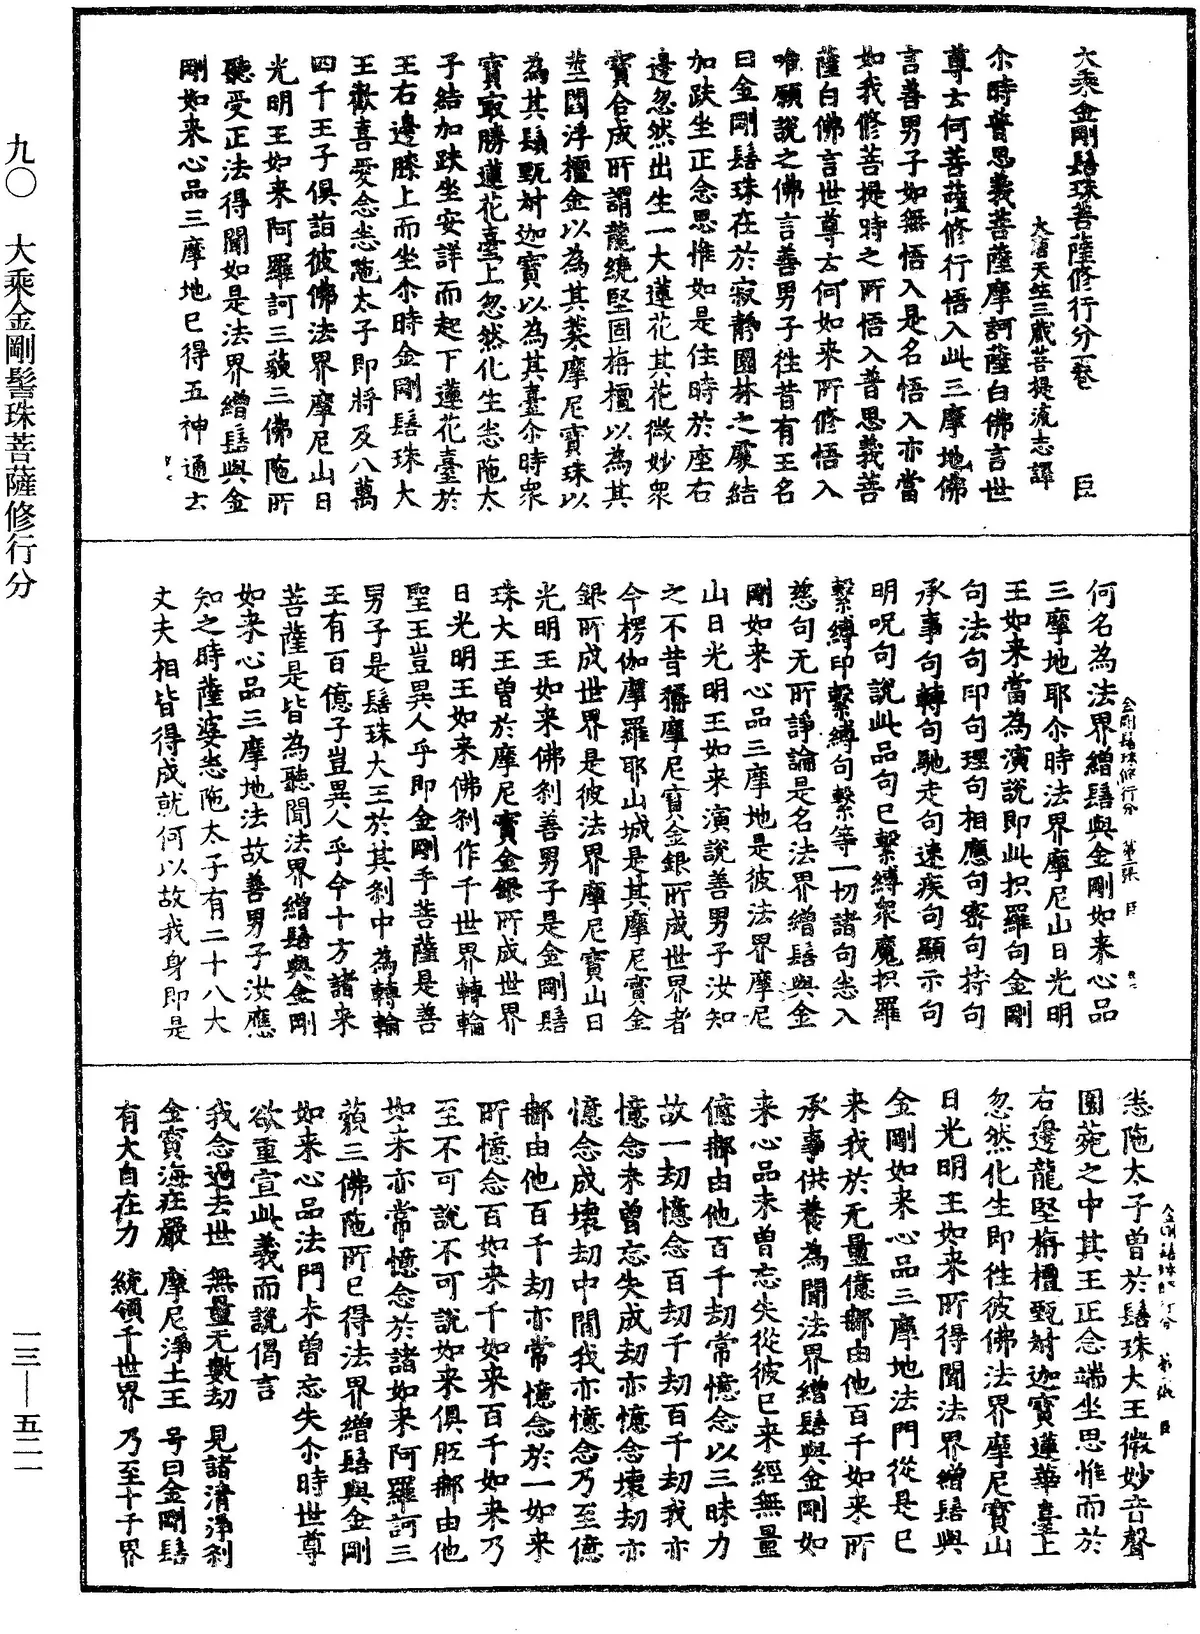 大乘金剛髻珠菩薩修行分一卷 臣
大唐天竺三藏菩提流志譯
尒時普思義菩薩摩訶薩白佛言世
尊云何菩薩修行悟入此三摩地佛
言善男子如無悟入是名悟入亦當
如我修菩提時之所悟入普思義菩
薩白佛言世尊云何如来所修悟入
唯願說之佛言善男子往昔有王名
曰金剛髻珠在於寂静園林之處結
加趺坐正念思惟如是住時於座右
邊忽然出生一大蓮花其花微妙衆
寶合成所謂龍繞堅固栴檀以為其
莖閻浮檀金以為其葉摩尼寶珠以
為其鬚甄尌迦寶以為其臺尒時衆
寶㝡勝蓮花臺上忽然化生悉陁太
子結加趺坐安詳而起下蓮花臺於
王右邊膝上而坐尒時金剛髻珠大
王歡喜愛念悉陁太子即將及八萬
四千王子俱詣彼佛法界摩尼山日
光明王如来阿羅訶三藐三佛陁所
聽受正法得聞如是法界繒髻與金
剛如来心品三摩地已得五神通去
何名為法界繒髻與金剛如来心品
三摩地耶尒時法界摩尼山日光明
王如来當為演說即此抧羅句金剛
句法句印句理句相應句密句持句
承事句轉句馳走句速疾句顯示句
明呪句說此品句已繫縛衆魔抧羅
繫縛印繫縛句繫等一切諸句悉入
慈句无所諍論是名法界繒髻與金
剛如来心品三摩地是彼法界摩尼
山日光明王如来演說善男子汝知
之不昔㝹摩尼寶金銀所成世界者
今楞伽摩羅耶山城是其摩尼寶金
銀所成世界是彼法界摩尼寶山日
光明王如来佛刹善男子是金剛髻
珠大王曾於摩尼寶金銀所成世界
日光明王如来佛刹作千世界轉輪
聖王豈異人乎即金剛手菩薩是善
男子是髻珠大王於其刹中為轉輪
王有百億子豈異人乎今十方諸来
菩薩是皆為聽聞法界繒髻與金剛
如来心品三摩地法故善男子汝應
知之時薩婆悉陁太子有二十八大
丈夫相皆得成就何以故我身即是
金剛髻珠修行分 第二張 臣
悉陁太子曾於髻珠大王微妙音聲
園苑之中其王正念端坐思惟而於
右邊龍堅栴檀甄尌迦寶蓮華臺上
忽然化生即往彼佛法界摩尼寶山
日光明王如来所得聞法界繒髻與
金剛如来心品三摩地法門從是已
来我於无量億𨚗由他百千如来所
承事供養為聞法界繒髻與金剛如
来心品未曾忘失從彼已来經無量
億𨚗由他百千劫常憶念以三昧力
故一劫憶念百劫千劫百千劫我亦
憶念未曾忘失成劫亦憶念壞劫亦
憶念成壞劫中間我亦憶念乃至億
𨚗由他百千劫亦常憶念於一如来
所憶念百如来千如来百千如来乃
至不可說不可說如来俱胝𨚗由他
如来亦常憶念於諸如来阿羅訶三
藐三佛陁所已得法界繒髻與金剛
如来心品法門未曾忘失尒時世尊
欲重宣此義而說偈言
我念過去世 無量无數劫 見諸清淨刹
金寶海莊嚴 摩尼淨土王 号曰金剛髻
有大自在力 統領千世界 乃至十千界
金剛髻珠修行分 第三張 臣
九〇 大乘金剛髻珠菩薩修行分
一三—五二一